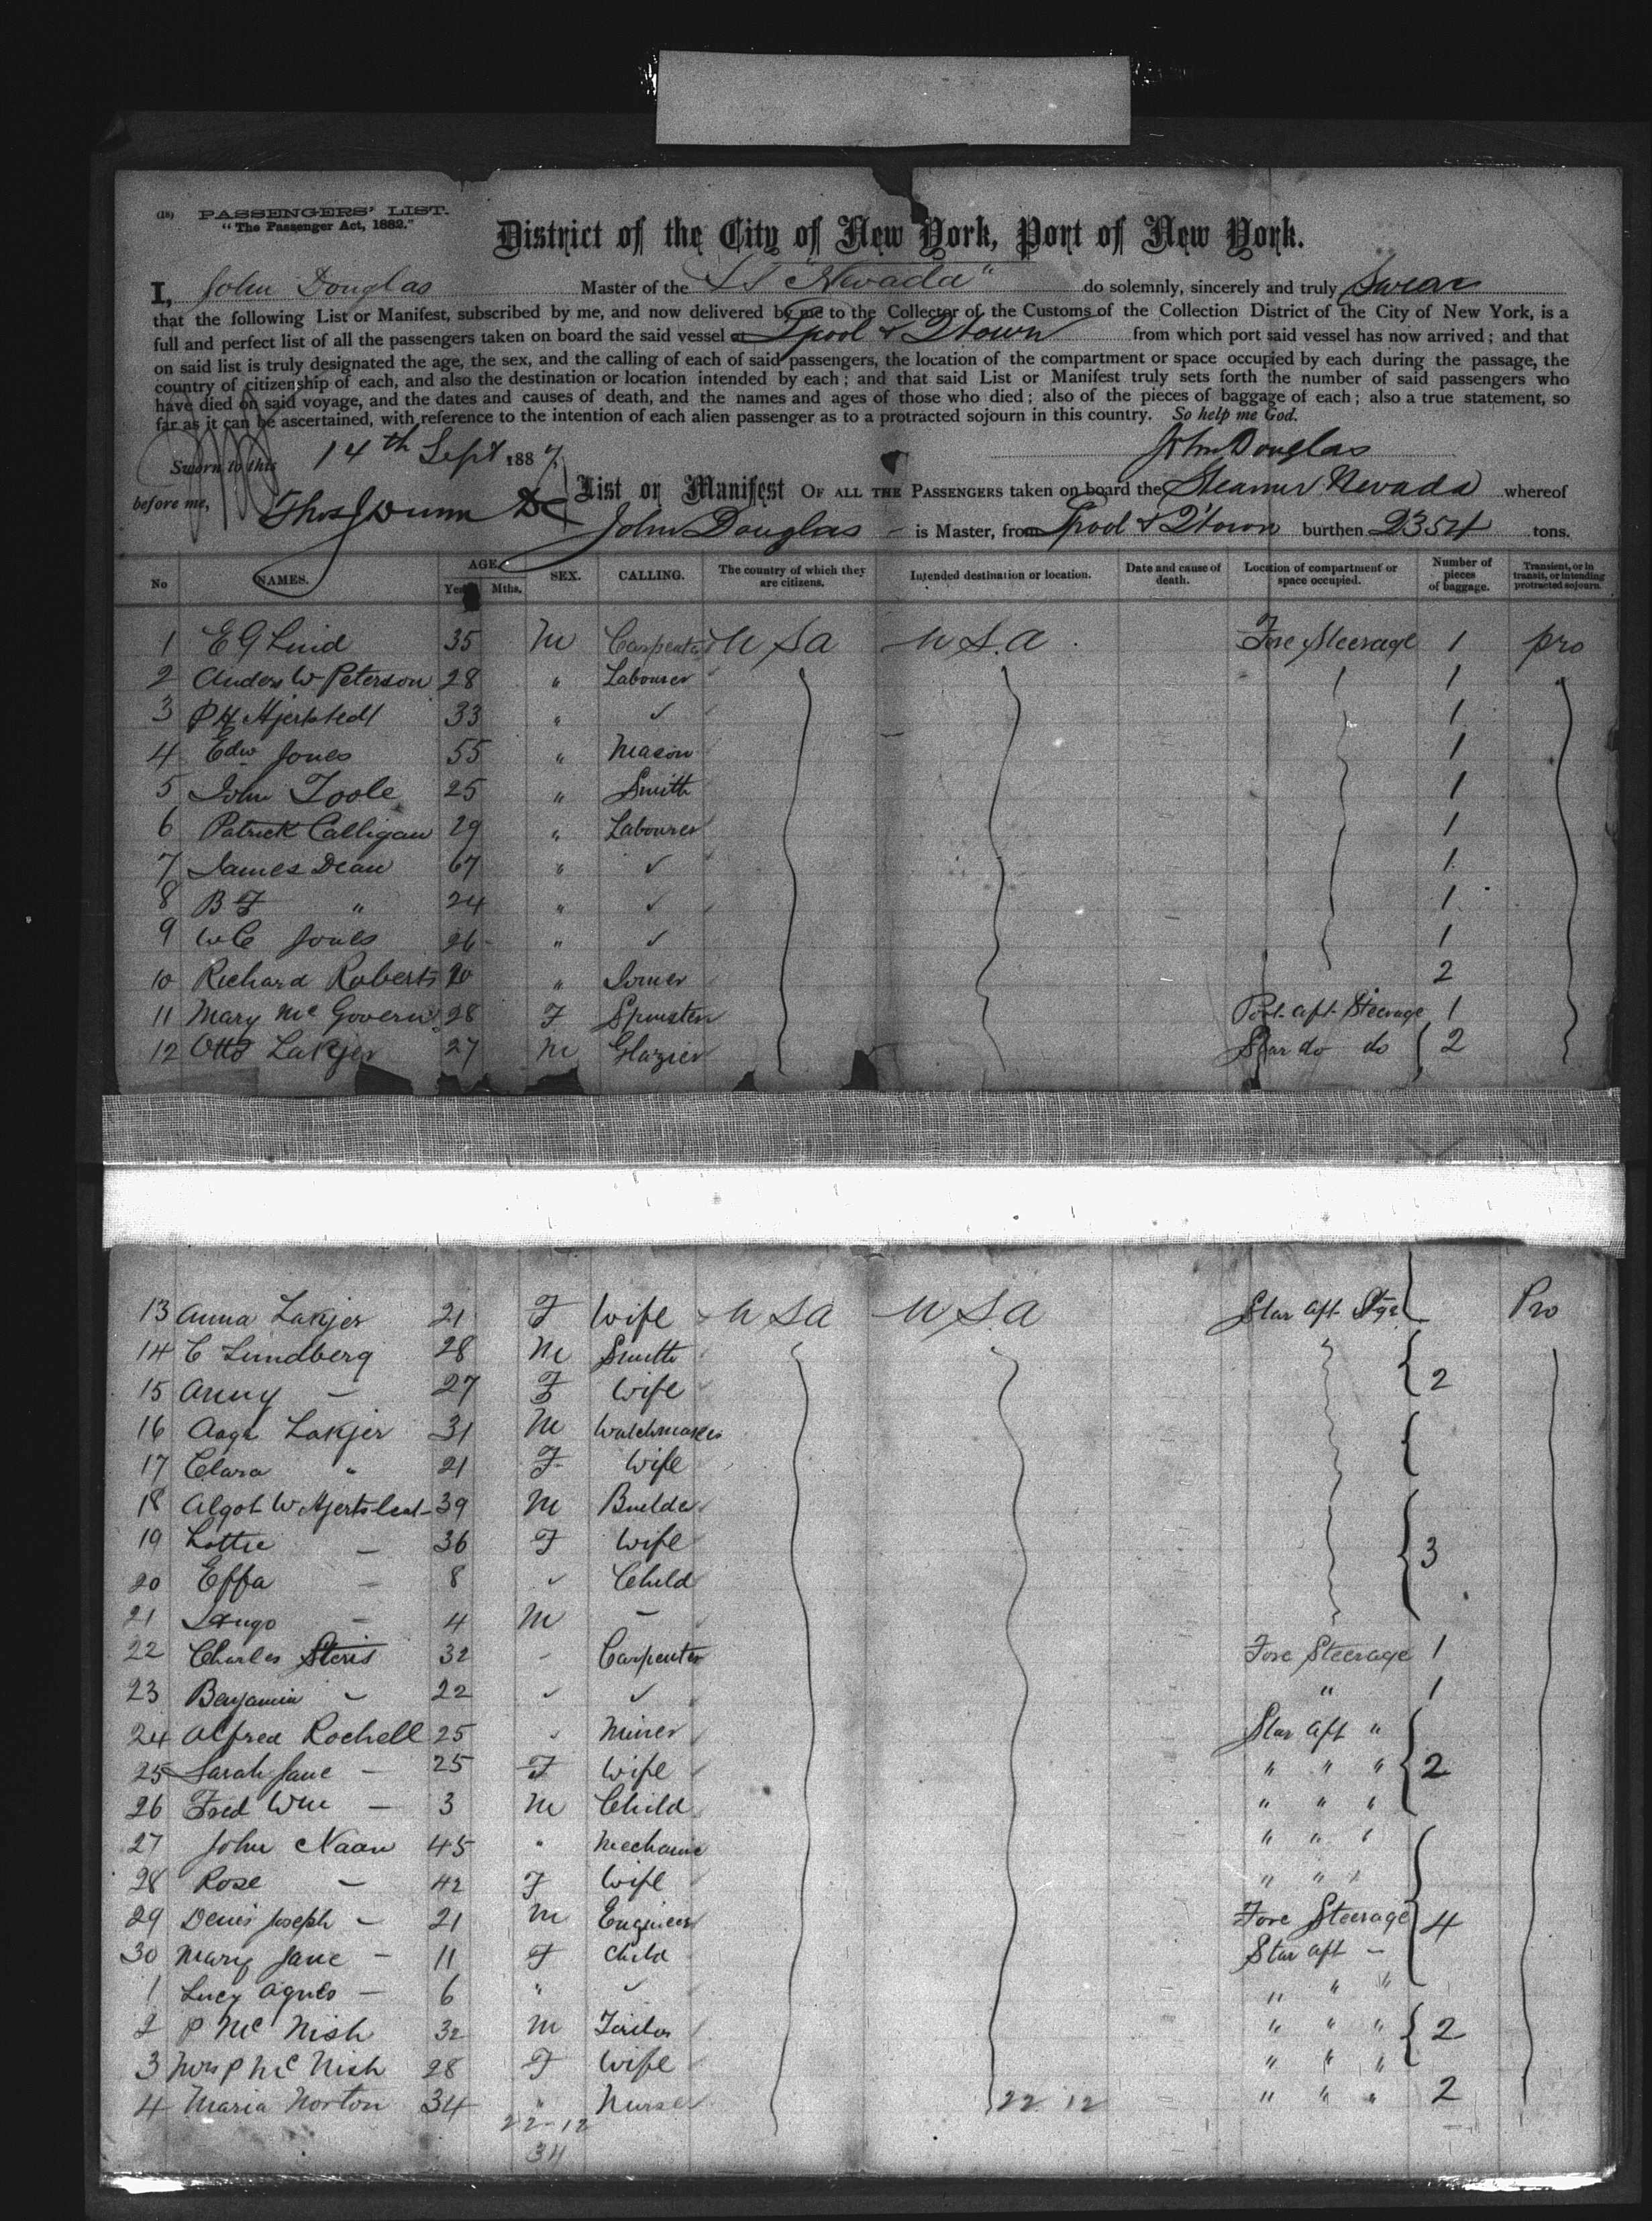 (18) PASSENGERS' LIST.
"The Passenger Act, 1882."
District of the City of New York, Port of New York.
I, John Douglas Master of the SS "Nevada" do solemnly, sincerely and truly Swear
that the following List or Manifest, subscribed by me, and now delivered by me to the Collector of the Customs of the Collection District of the City of New York, is a
full and perfect list of all the passengers taken on board the said vessel at Lpool & Qtown from which port said vessel has now arrived; and that
on said list is truly designated the age, the sex, and the calling of each of said passengers, the location of the compartment or space occupied by each during the passage, the
country of citizenship of each, and also the destination or location intended by each; and that said List or Manifest truly sets forth the number of said passengers who
have died on said voyage, and the dates and causes of death, and the names and ages of those who died; also of the pieces of baggage of each; also a true statement, so
far as it can be ascertained, with reference to the intention of each alien passenger as to a protracted sojourn in this country. So help me God.
Sworn to this 14th Sept 1887 John Douglas
before me, Thos J Dunn DC
List or Manifest OF ALL THE PASSENGERS taken on board the Steamer Nevada whereof
John Douglas is Master, from Lpool & Q'town burthen 2354 tons.
No NAMES. AGE. Years Mths. SEX. CALLING. The country of which they are citizens. Intended destination or location. Date and cause of death. Location of compartment or space occupied. Number of pieces of baggage. Transient, or in transit, or intending protracted sojourn.
1 E G Lind 35 M Carpenter U S A U S. A. Fore Steerage 1 pro
2 Anders W Peterson 28 " Labourer 1
3 P H Hjertstedt 33 " ✓ 1
4 Edw Jones 55 " Mason 1
5 John Toole 25 " Smith 1
6 Patrick Calligan 29 " Labourer 1
7 James Dean 67 " ✓ 1
8 B F " 24 " ✓ 1
9 W C Jones 26 " ✓ 1
10 Richard Roberts 20 " 2
11 Mary Mc Govern 28 F Spinster Port aft Steerage 1
12 Otto Lakjer 27 M Glazier Star do do 2
13 Anna Lakjer 21 F Wife U S A U S. A Star aft Stge Pro
14 C Lundberg 28 M Smith
15 Anny - 27 F Wife 2
16 Aage Lakjer 31 M Watchmaker
17 Clara " 21 F Wife
18 Algot W 39 M Builder
19 Lottie - 36 F Wife 3
20 Effa - 8 ✓ Child
21 - 4 M -
22 Charles 32 - Carpenter Fore Steerage 1
23 Benjamin - 22 ✓ ✓ " 1
24 Alfred Rochell 25 Miner Star aft "
25 Sarah Jane - 25 F Wife " " " 2
26 Fred Wm - 3 M Child " " "
27 John Naan 45 " Mechanic " " "
28 Rose - 42 F Wife " " "
29 Denis Joseph - 21 M Engineer Fore Steerage 4
30 Mary Jane - 11 F Child Star aft -
1 Lucy Agnes - 6 " ✓ " " "
2 P Mc Nish 32 M Tailor " " " 2
3 Mrs P Mc Nish 28 F Wife " " "
4 Maria Norton 34 " Nurse " " " 2
22-12 22 12
34